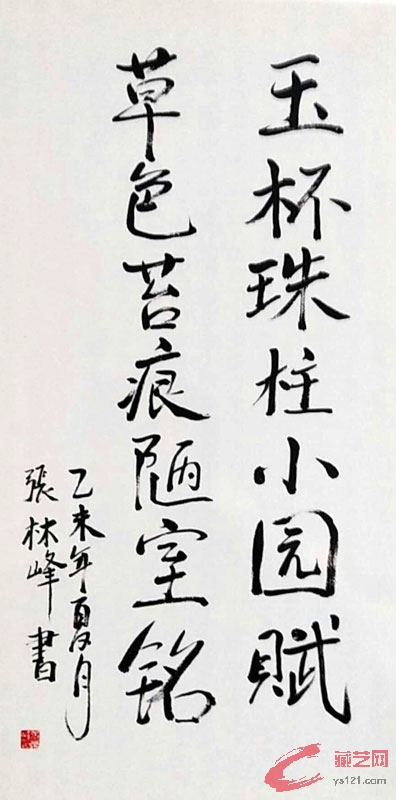 玉杯珠柱小园赋
草色苔痕陋室铭
乙未年夏月
張林峰書
藏艺网
ys121.com